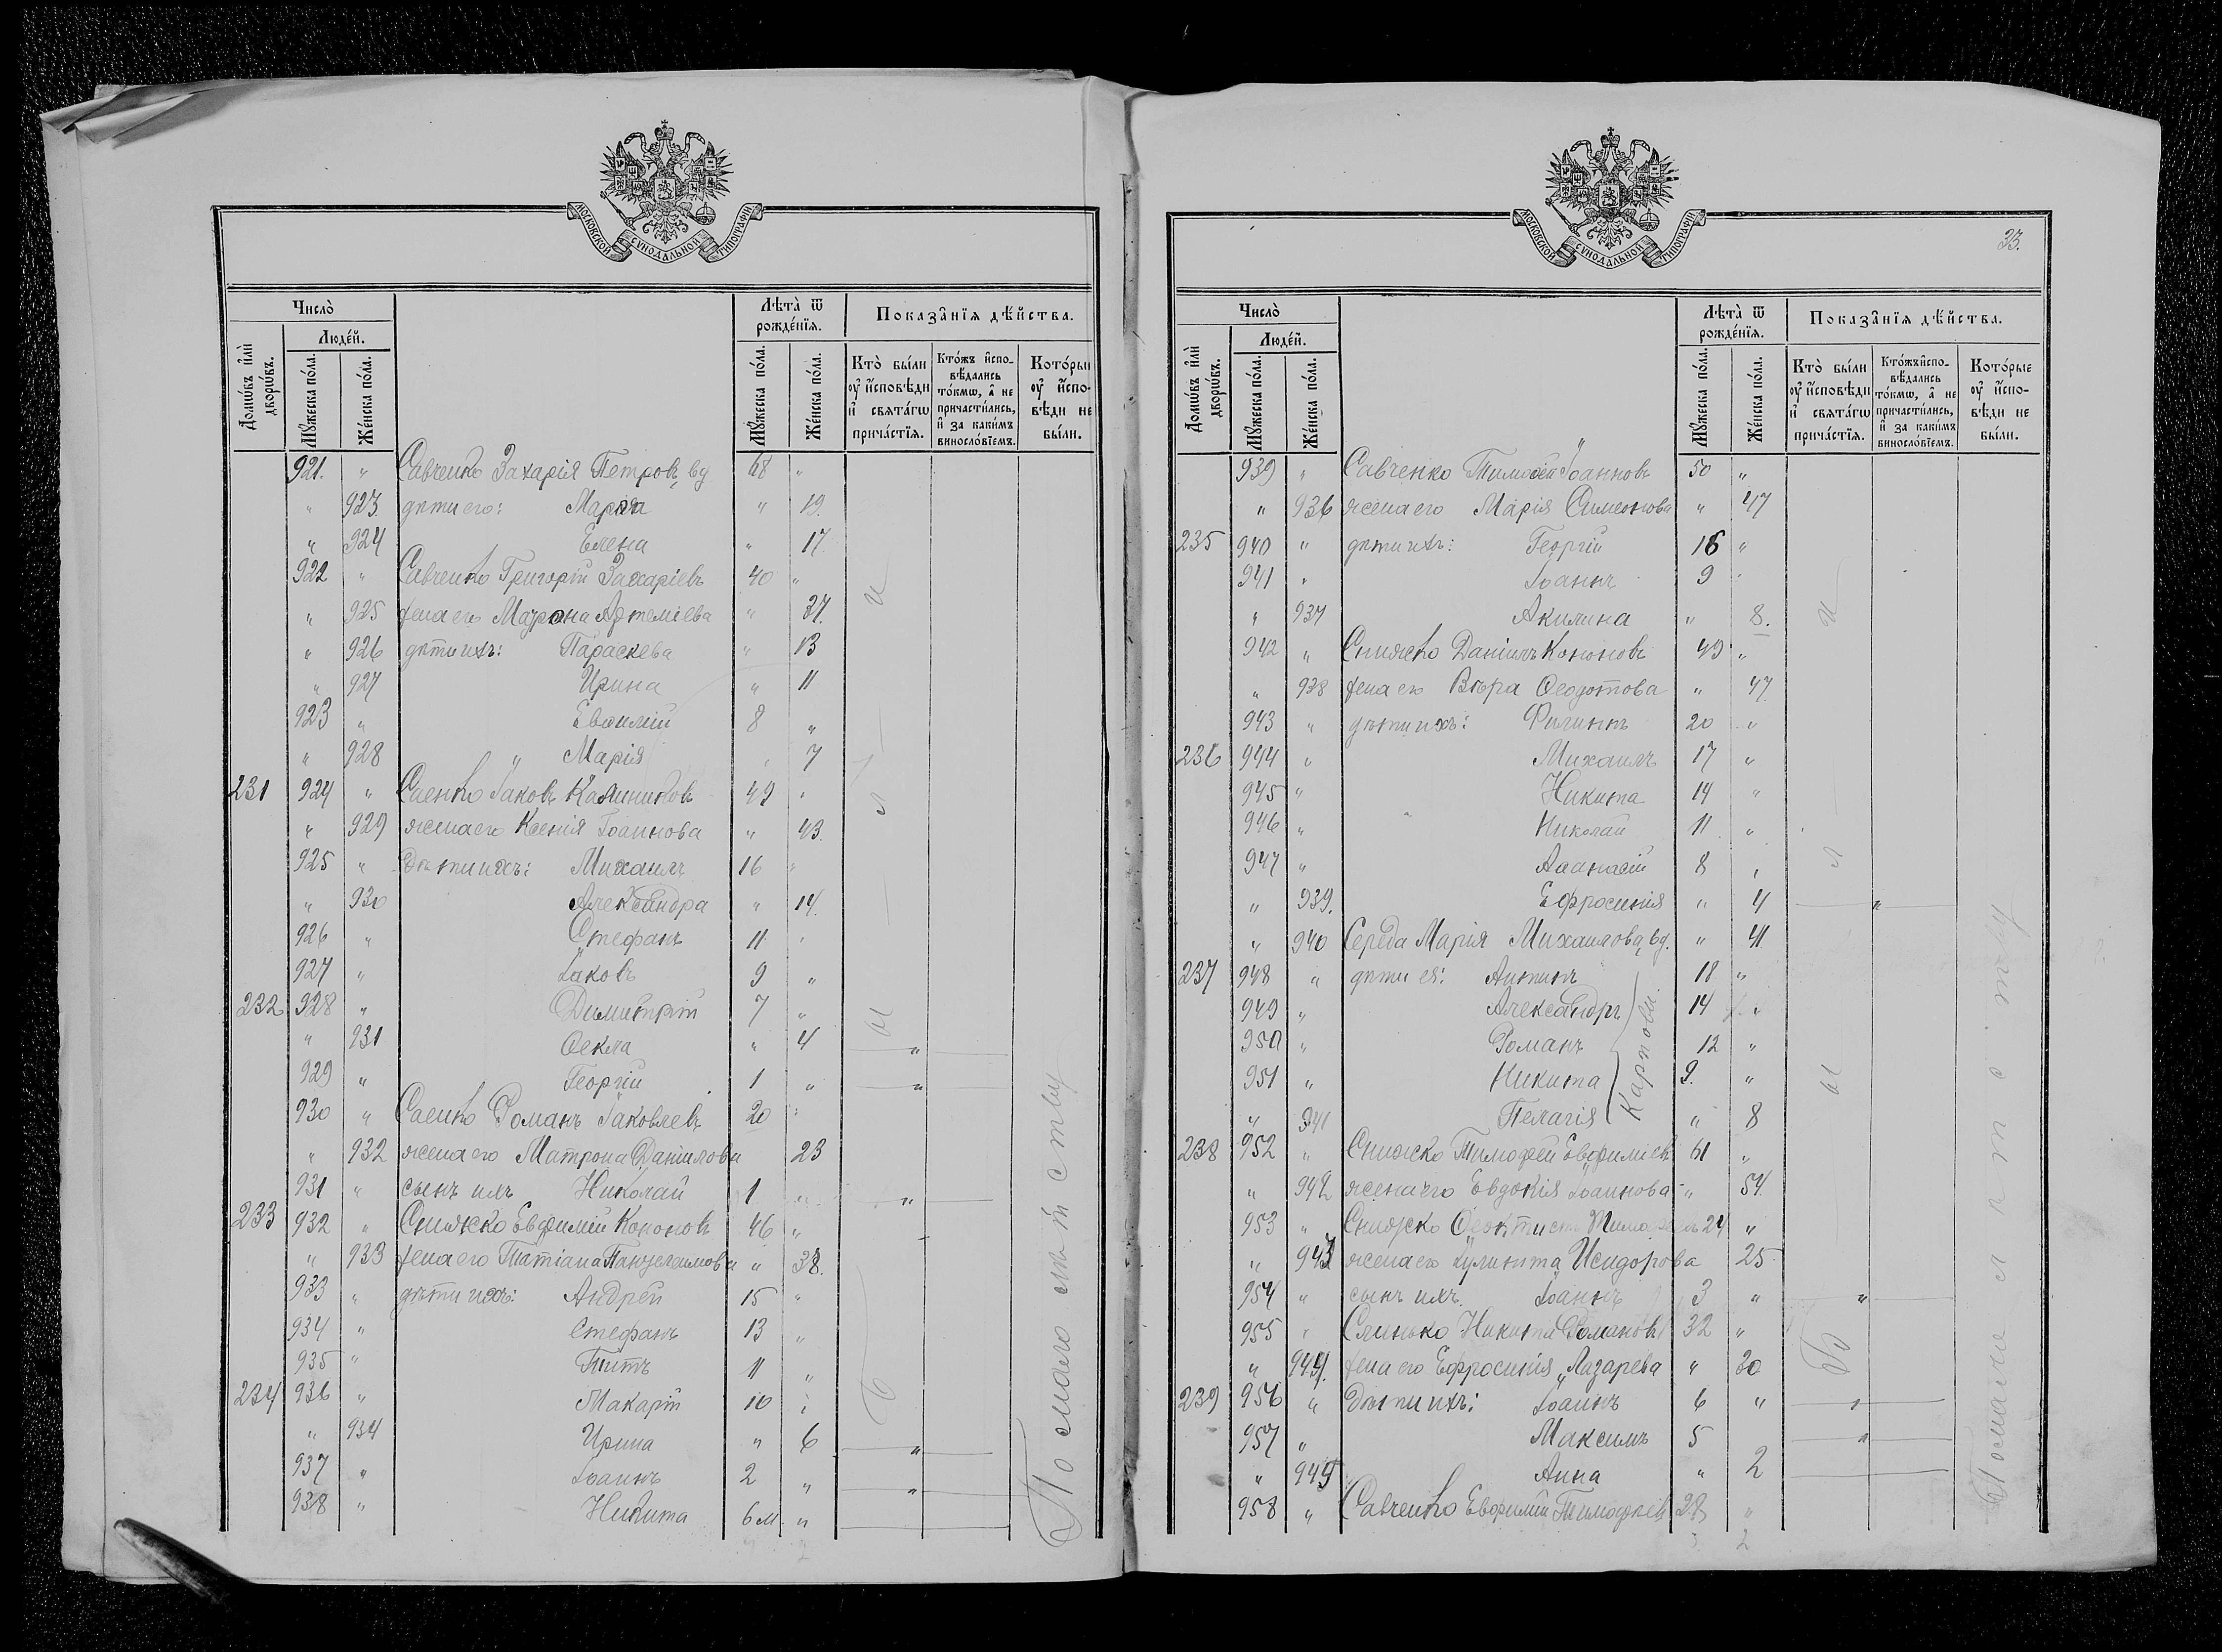 МОСКОВСКОЙ СѴНОДАЛЬНОЙ ТИПОГРАФІИ
Число̀
Домѡ́въ и҆лѝ дворѡ́въ.
Люде́й.
Мꙋ́жеска по́ла.
Же́нска по́ла.
Лѣ́та̀ ѿ рожде́нїѧ.
Мꙋ́жеска по́ла.
Же́нска по́ла.
Показа̑нїѧ дѣ́йства.
Кто̀ бы́ли оу҆ и҆сповѣди и҆ свѧта́гѡ прича́стїѧ.
Кто́жъ и҆спо-вѣдались то́кмѡ, а҆ не причасти́лись, и҆ за каки́мъ винослові́емъ.
Кото́рые оу҆ и҆спо-вѣди не бы́ли.
921. " Савченко Захарія Петровъ, вд 68 "
" 923 дѣти его: Марѳа " 19.
" 924 Елена " 17.
922 " Савченко Григорій Захаріевъ 40 "
" 925 жена его Матрона Артеміева " 37.
" 926 дѣти ихъ: Параскева " 13
" 927 Ирина " 11
923 " Евѳимій 8 "
" 928 Марія " 7
231 924 " Саенко Іаковъ Калиниковъ 49 "
" 929 жена его Ксенія Іоаннова " 43.
925 " Дѣти ихъ: Михаилъ 16 "
" 930 Александра " 14.
926 " Стефанъ 11 "
927 " Іаковъ 9 "
232 928 " Димитрій 7 "
" 931 Ѳекла " 4 "
929 " Георгій 1 " "
930 " Саенко Романъ Іаковлевъ 20 "
" 932 жена его Матрона Даніилова 23
931 " сынъ ихъ Николай 1 " "
233 932 " Снижко Евфимій Кононовъ 46 "
" 933 жена его Татіана Пантелеимова " 38.
933 " дѣти ихъ: Андрей 15 "
934 " Стефанъ 13 "
935 " Титъ 11 "
234 936 " Макарій 10 "
" 934 Ирина " 6 "
937 " Іоаннъ 2 " "
938 " Никита 6 м. "
Б ы л и
По малолѣтству
МОСКОВСКОЙ СѴНОДАЛЬНОЙ ТИПОГРАФІИ
33.
Число̀
Домѡ́въ и҆лѝ дворѡ́въ.
Люде́й.
Мꙋ́жеска по́ла.
Же́нска по́ла.
Лѣ́та̀ ѿ рожде́нїѧ.
Мꙋ́жеска по́ла.
Же́нска по́ла.
Показа̑нїѧ дѣ́йства.
Кто̀ бы́ли оу҆ и҆сповѣди и҆ свѧта́гѡ прича́стїѧ.
Кто́жъ и҆спо-вѣдались то́кмѡ, а҆ не причасти́лись, и҆ за каки́мъ винослові́емъ.
Кото́рые оу҆ и҆спо-вѣди не бы́ли.
939 " Савченко Тимоѳей Іоанновъ 50 "
" 936 жена его Марія Симеонова " 47
235 940 " дѣти ихъ: Георгій 16 "
941 " Іоаннъ 9 "
" 937 Акилина " 8.
942 " Снижко Даніилъ Кононовъ 49 "
" 938 жена его Вѣра Ѳеодотова " 47
943 " дѣти ихъ: Филиппъ 20 "
236 944 " Михаилъ 17 "
945 " Никита 14 "
946 " Николай 11 "
947 " Аѳанасій 8 "
" 939. Ефросинія " 4 "
" 940 Середа Марія Михаилова, вд. " 41
237 948 " дѣти ея: Антипъ 18 "
949 " Александръ 14 "
950 " Романъ 12 "
951 " Никита 9. "
" 941 Пелагія " 8
Карповы
238 952 " Снижко Тимофей Евфиміевъ 61 "
" 942 жена его Евдокія Іоаннова " 54
953 " Снижко Ѳеоктистъ Тимофеевъ 24 "
" 943 жена его Іулиитта Исидорова 25
954 " сынъ ихъ Іоаннъ 3 " "
955 " Слинько Никита Романовъ 32 "
" 944. жена его Ефросинія Лазарева " 30
239 956 " Дѣти ихъ: Іоаннъ 6 " "
957 " Максимъ 5 "
" 945 Анна " 2
958 " Савченко Евфимій Тимофеевъ 28 "
Б ы л и
По малолѣтству